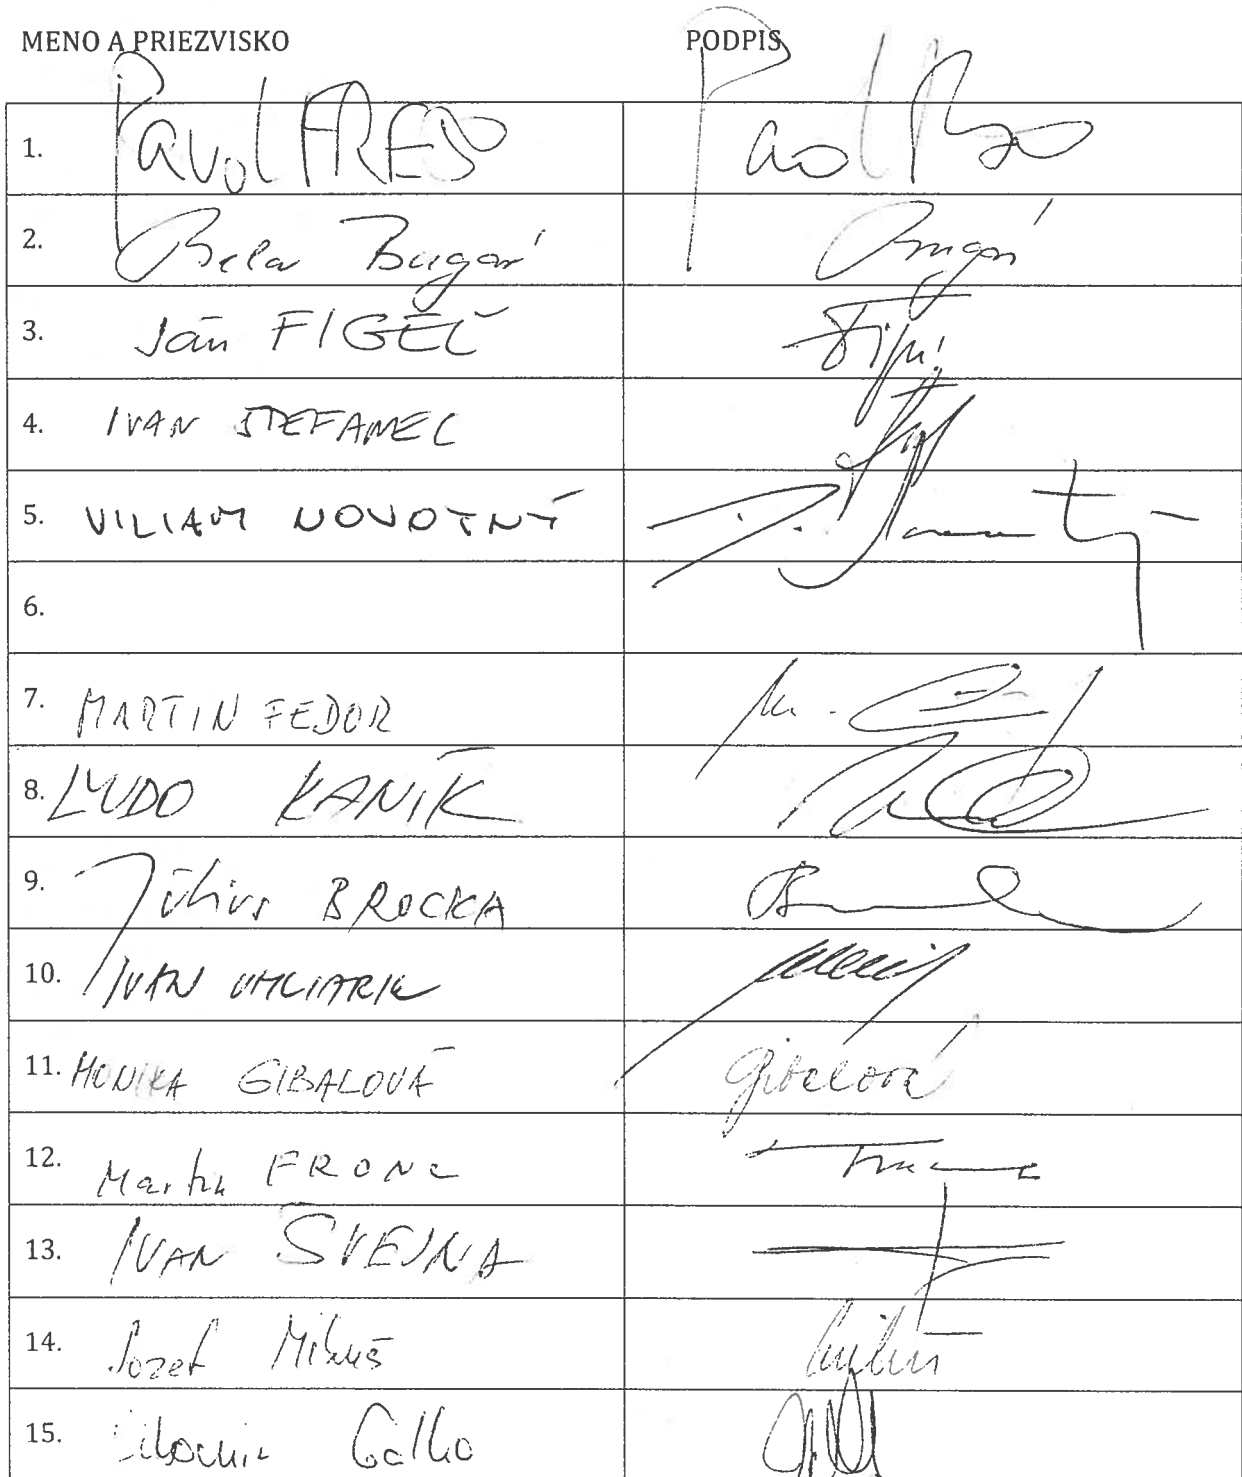 MENO A PRIEZVISKO PODPIS
1. Pavol FREŠO
2. Bela Bugár Bugár
3. Ján FIGEĽ Figeľ
4. IVAN ŠTEFANEC
5. VILIAM NOVOTNÝ
6.
7. MARTIN FEDOR
8. ĽUDO KANÍK
9. Július BROCKA
10. IVAN UHLIARIK
11. MONIKA GIBALOVÁ Gibalová
12. Martin FRONC
13. IVAN ŠVEJNA
14. Jozef Mikuš Mikuš
15. Ľubomír Galko